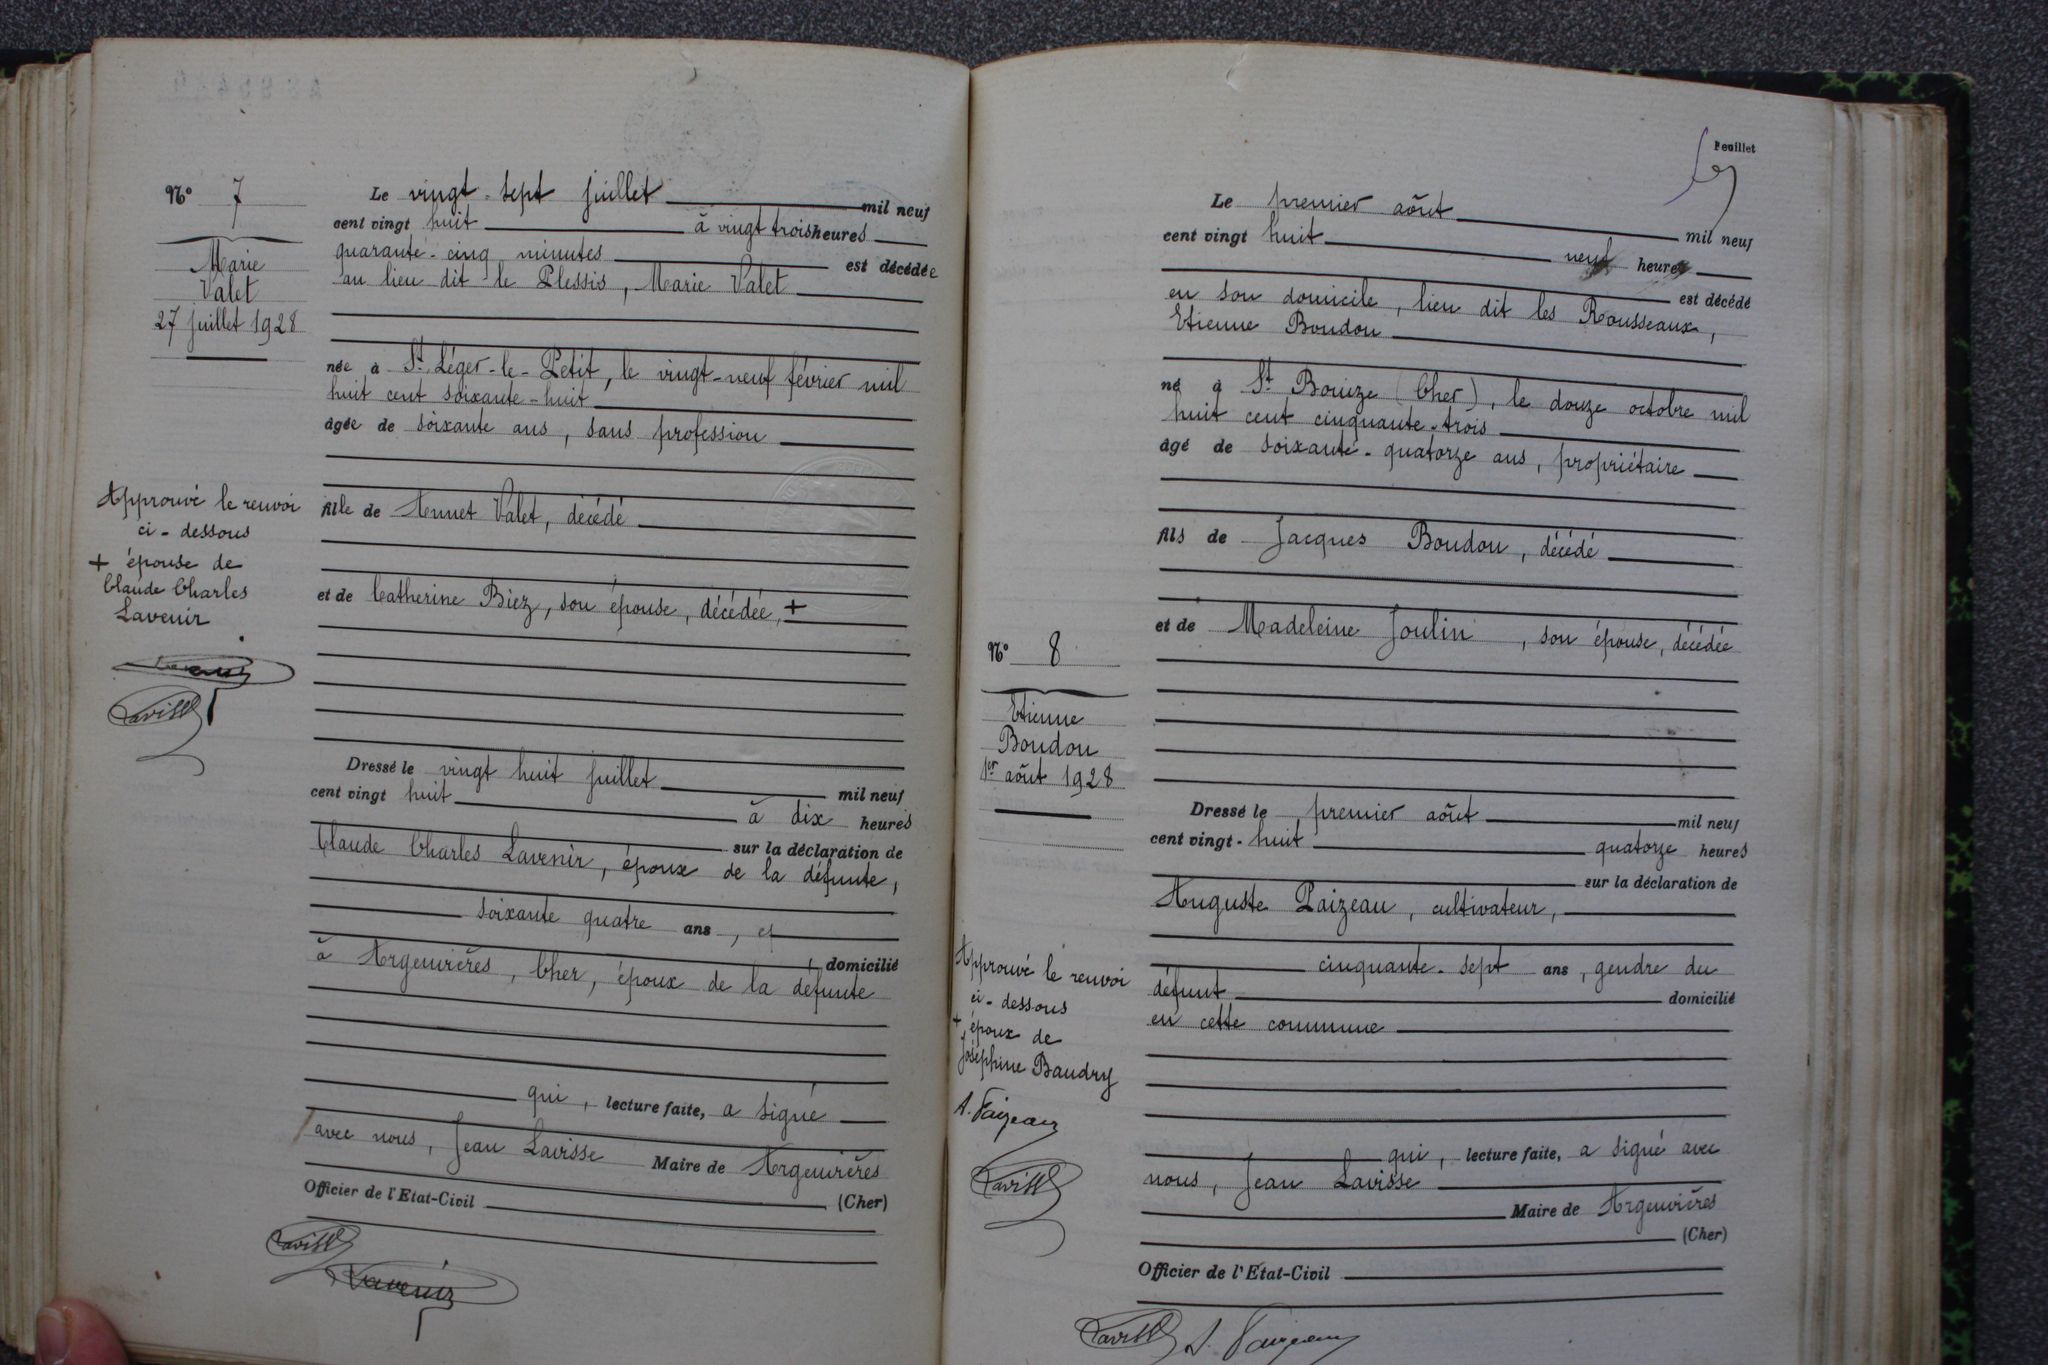 N° 7
Marie
Valet
27 juillet 1928
Le vingt-sept juillet mil neuf
cent vingt huit à vingt trois heures
quarante-cinq minutes est décédée
au lieu dit le Plessis, Marie Valet
née à St Léger-le-Petit, le vingt-neuf février mil
huit cent soixante-huit
âgée de soixante ans, sans profession
fille de Annet Valet, décédé
et de Catherine Biez, son épouse, décédée, +
Approuvé le renvoi
ci-dessous
+ épouse de
Claude Charles
Lavenir
Dressé le vingt huit juillet mil neuf
cent vingt huit à dix heures
sur la déclaration de
Claude Charles Lavenir, époux de la défunte,
soixante quatre ans, et
domicilié
à Argenvières, Cher, époux de la défunte
qui, lecture faite, a signé
avec nous, Jean Lavisse Maire de Argenvières
Officier de l'Etat-Civil (Cher)
Lavisse
Lavenir
Feuillet
Le premier août mil neuf
cent vingt huit neuf heures
est décédé
en son domicile, lieu dit les Rousseaux,
Etienne Boudou
né à St Bouize (Cher), le douze octobre mil
huit cent cinquante-trois
âgé de soixante-quatorze ans, propriétaire
fils de Jacques Boudou, décédé
et de Madeleine Joulin, son épouse, décédée
N° 8
Etienne
Boudou
1er août 1928
Dressé le premier août mil neuf
cent vingt-huit quatorze heures
sur la déclaration de
Auguste Paizeau, cultivateur,
cinquante-sept ans, gendre du
défunt domicilié
en cette commune
Approuvé le renvoi
ci-dessous
+ époux de
Joséphine Baudry
A. Paizeau
Lavisse
qui, lecture faite, a signé avec
nous, Jean Lavisse
Maire de Argenvières
(Cher)
Officier de l'État-Civil
Lavisse A. Paizeau